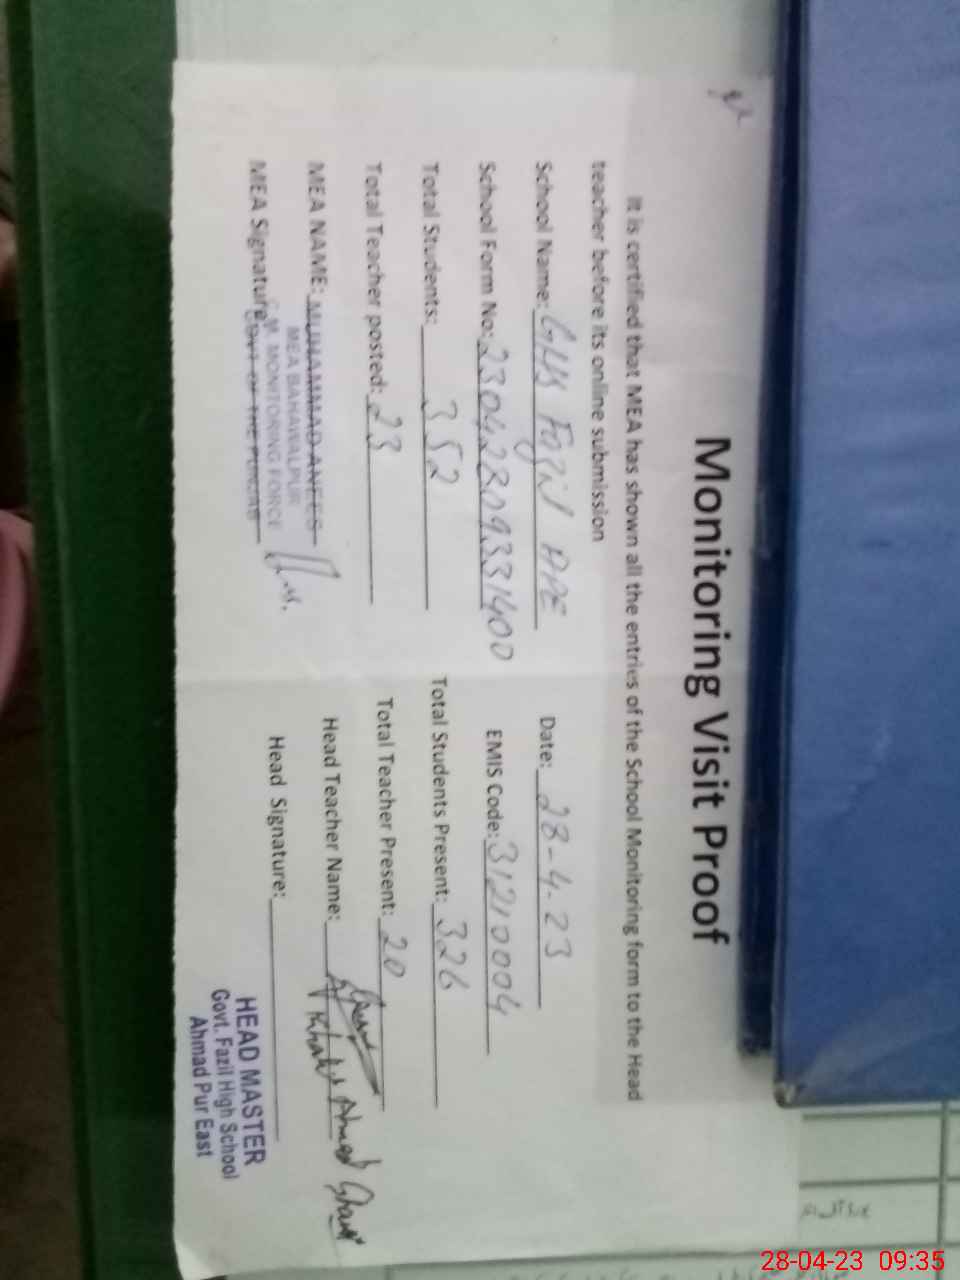 Monitoring Visit Proof
It is certified that MEA has shown all the entries of the School Monitoring form to the Head
teacher before its online submission
School Name: GHS Fazil APE Date: 28-4-23
School Form No: 23042809331400 EMIS Code: 31210004
Total Students: 352 Total Students Present: 326
Total Teacher posted: 23 Total Teacher Present: 20
MEA NAME: MUHAMMAD ANEES Head Teacher Name: Khalil Ahmad
MEA BAHAWALPUR
MEA Signature: C.M. MONITORING FORCE Head Signature:
GOVT OF THE PUNJAB
HEAD MASTER
Govt. Fazil High School
Ahmad Pur East
28-04-23 09:35